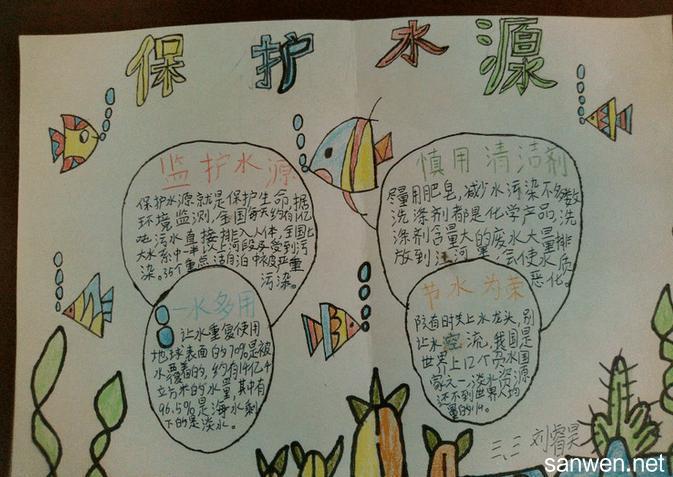 保护水源
监护水源
保护水源就是保护生命,据
环境监测,全国每天约有1亿
吨污水直接排入人体,全国七
大水系中一半以上河段受到污
染。35个重点湖泊中被严重
污染。
慎用清洁剂
尽量用肥皂,减少水污染不多数
洗涤剂都是化学产品,洗
涤剂含量大的废水大量排
放到江河里,会使水质
恶化。
一水多用
让水重复使用
地球表面的70%是被
水覆着的,约有14亿千
立方米的水量,其中有
96.5%是海水剩
下的是淡水。
节水为荣
随时关上水龙头,别
让水空流,我国是
世界上12个贫水国
家之一,淡水资源
还不到世界人均
量的1/4。
三、三 刘睿昊
sanwen.net